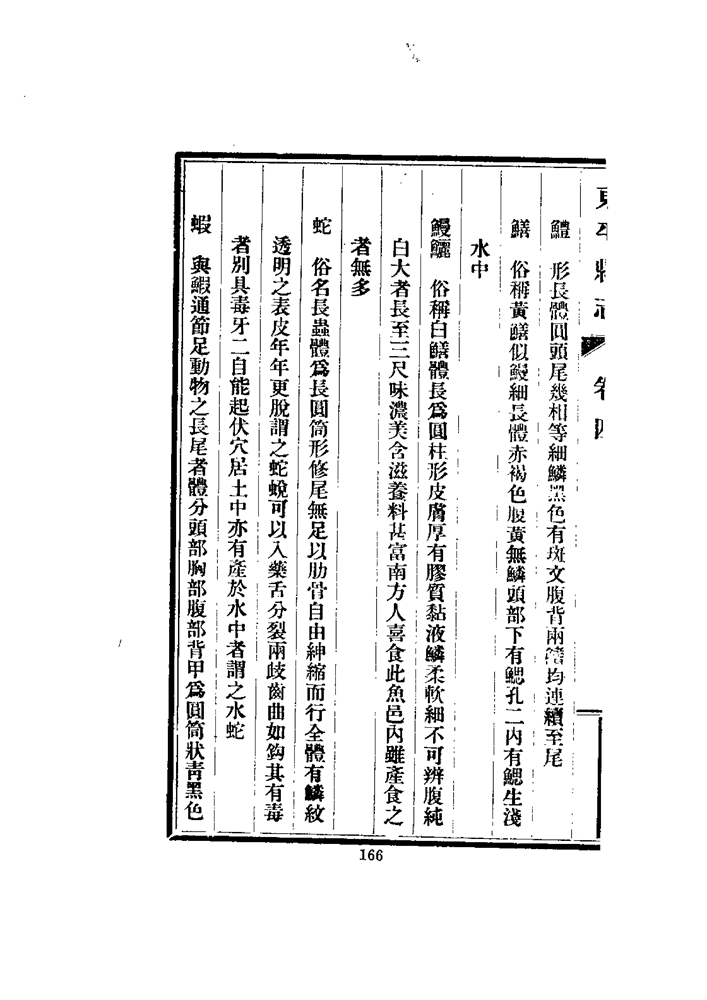 東平縣志 卷四
鱧 形長體圓頭尾幾相等細鱗黑色有斑文腹背兩鰭均連續至尾
鱔 俗稱黃鱔似鰻細長體赤褐色腹黃無鱗頭部下有鰓孔二內有鰓生淺
水中
鰻鱺 俗稱白鱔體長爲圓柱形皮膚厚有膠質黏液鱗柔軟細不可辨腹純
白大者長至三尺味濃美含滋養料甚富南方人喜食此魚邑內雖產食之
者無多
蛇 俗名長蟲體爲長圓筒形修尾無足以肋骨自由紳縮而行全體有鱗紋
透明之表皮年年更脫謂之蛇蛻可以入藥舌分裂兩歧齒曲如鈎其有毒
者別具毒牙二自能起伏穴居土中亦有產於水中者謂之水蛇
蝦 與鰕通節足動物之長尾者體分頭部胸部腹部背甲爲圓筒狀靑黑色
166